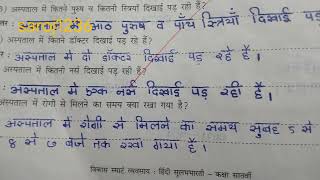 ) अस्पताल में कितने पुरुष व कितनी स्त्रियाँ दिखाई पड़ रही हैं?
में आठ पुरुष व पाँच स्त्रियाँ दिखाई पड़
अस्पताल में कितने डॉक्टर दिखाई पड़ रहे हैं?
अस्पताल में दो डॉक्टर दिखाई पड़ रहे हैं।
अस्पताल में कितनी नर्स दिखाई पड़ रही हैं?
अस्पताल में एक नर्स दिखाई पड़ रही हैं।
अस्पताल में रोगी से मिलने का समय क्या रखा गया है?
अस्पताल में रोगी से मिलने का समय सुबह ५ से
८ से ७ बजे तक रखा गया हैं।
विकास स्मार्ट व्यवसाय : हिंदी सुलभभारती - कक्षा सातवीं